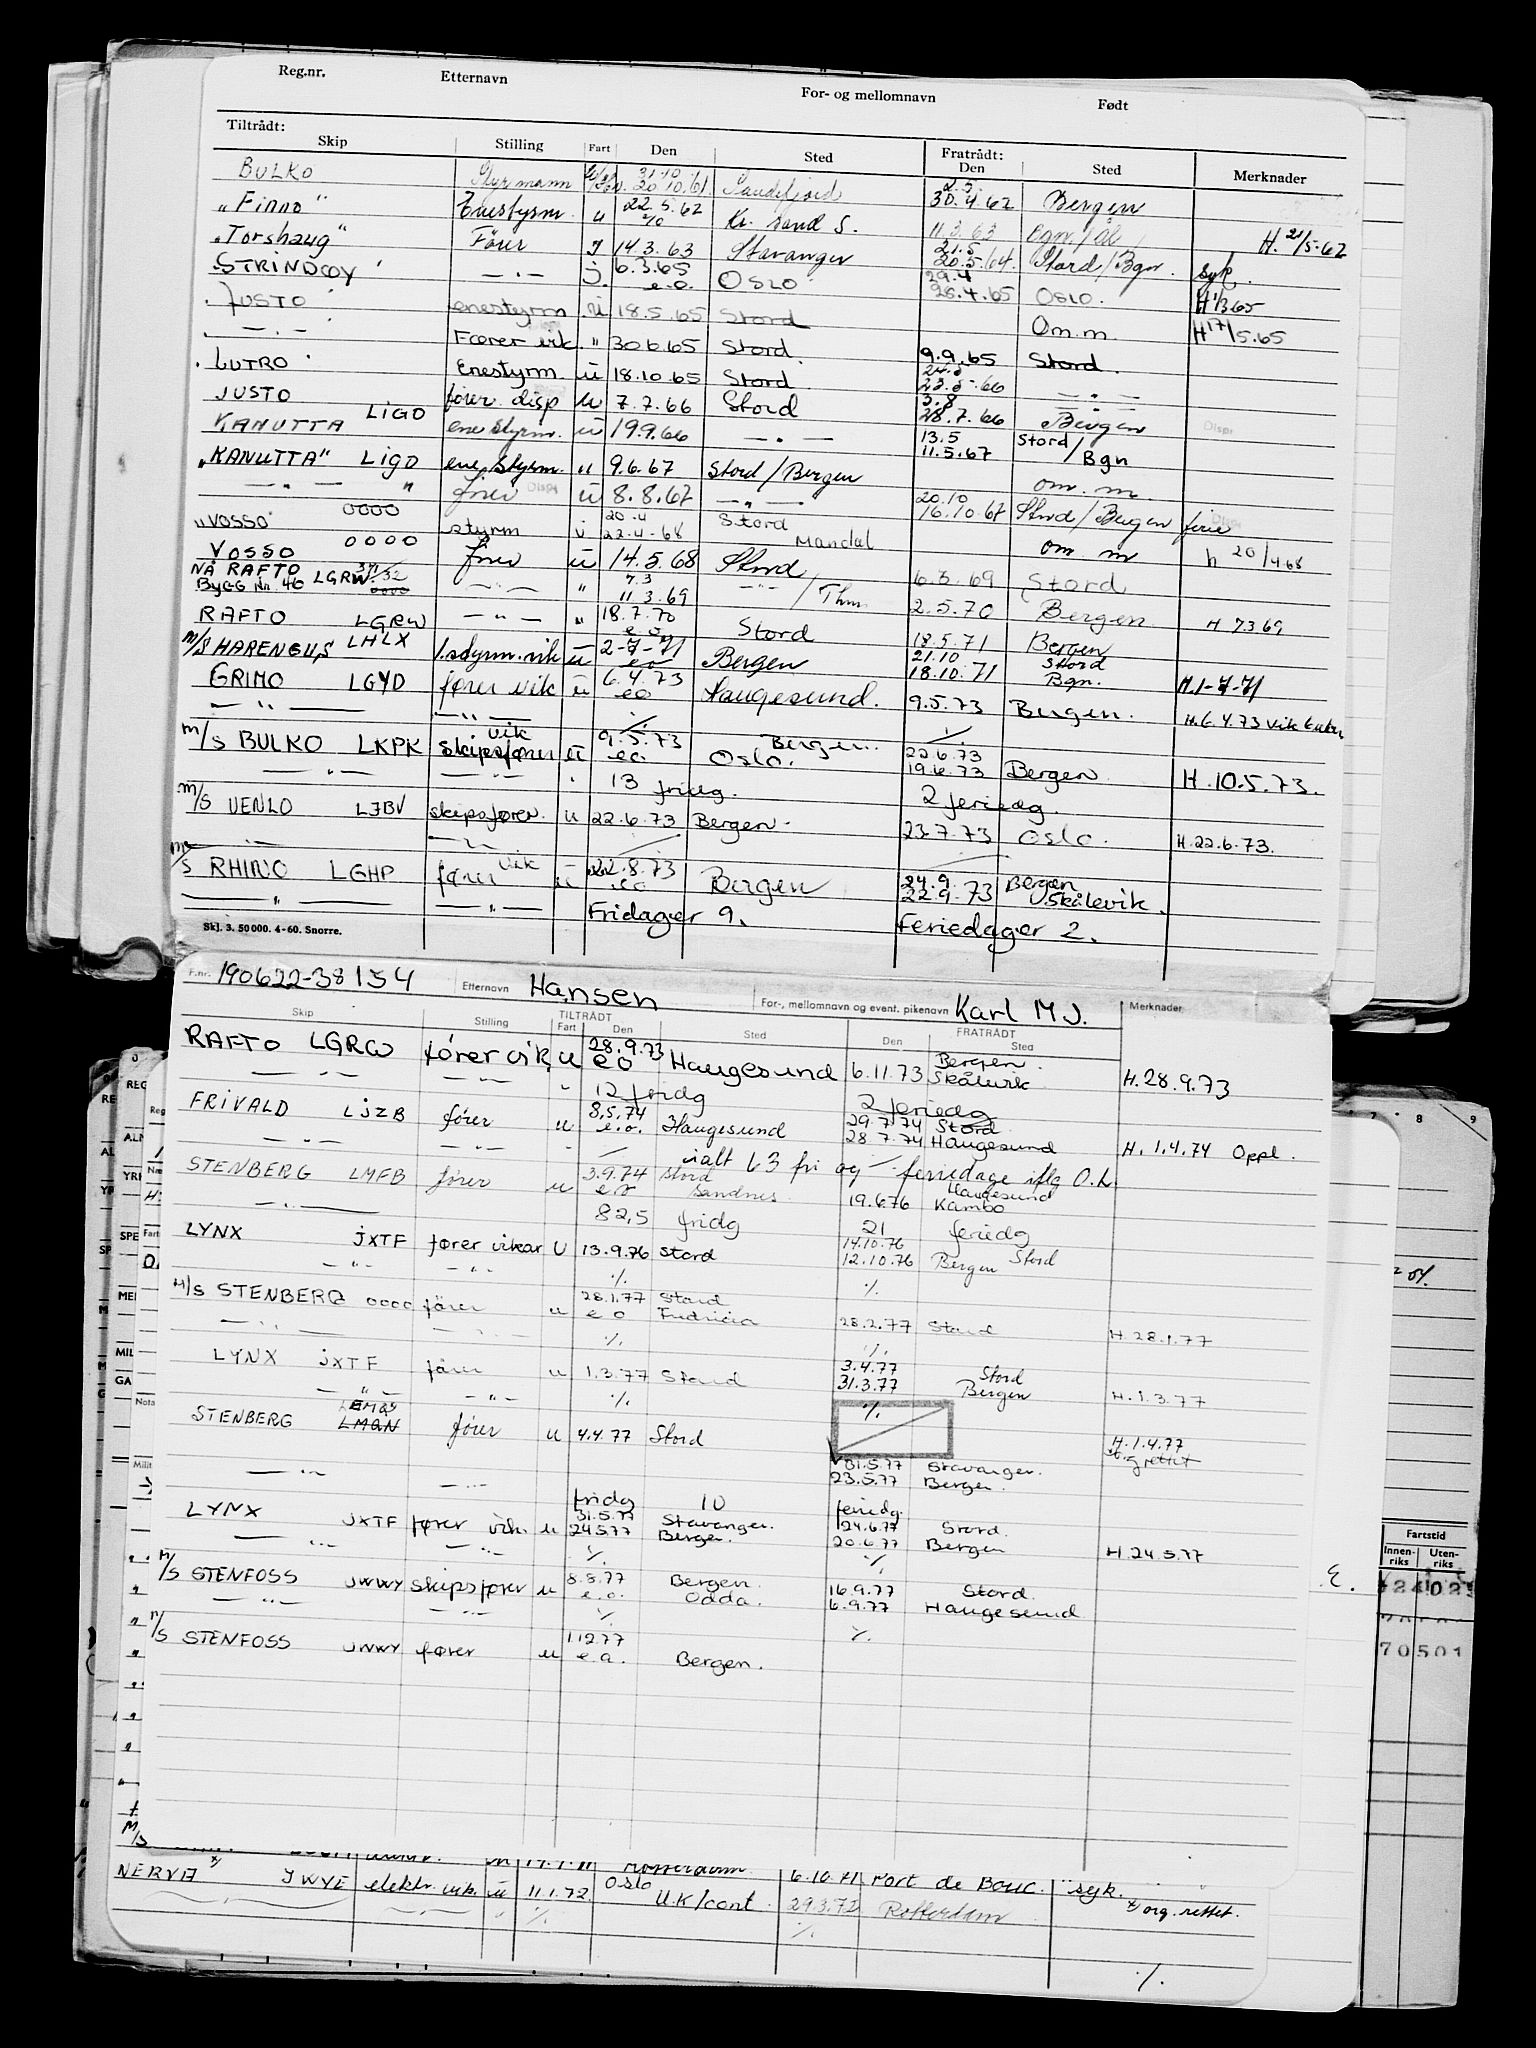 Reg.nr. Etternavn For- og mellomnavn Født
Tiltrådt: Fratrådt:
Skip Stilling Fart Den Sted Den Sted Merknader
BULKO Styrmann 31.10 20.10.61. Sandefjord 2.5 30.4.62 Bergen
"Finno" Enestyrm. u 22.5.62 Kr. sand S. 11.3.63 Bgn. H. 21/5-62
"Torshaug" Fører 14.3.63 Stavanger 21.5 20.5.64. Stord/Bgn. syk.
STRINDØY — " — j. 6.3.65 e.o. OSLO 29.4 28.4.65 OSLO. H 1/3 65
JUSTO enestyrm ü 18.5.65 Stord Om.m. H 17/5.65
— " — Fører vik. " 30.6.65 Stord. 9.9.65 Stord.
LUTRO Enestyrm ü 18.10.65 Stord 24.5 23.5.66 — " —
JUSTO fører. disp u 7.7.66 Stord 3.8 28.7.66 Bergen
KANUTTA LIGO ene styrm. ü 19.9.66 — " — 13.5 11.5.67 Stord/Bgn
"KANUTTA" LIGO ene styrm. u 9.6.67 Stord/Bergen om. m.
— " — " fører ü 8.8.67 — " — 20.10 16.10.67 Stord/Bergen ferie
"VOSSO" 0000 styrm ü 20.4 22.4.68 Stord Mandal om m h 20/4.68
VOSSO 0000 fører ü 14.5.68 Stord 6.3.69 Stord
NÅ RAFTO LGRW
BYGG Nr. 46 0000 — " — " 7.3 11.3.69 — " — / Thm. 2.5.70 Bergen H 7369
RAFTO LGRW — " — " 18.7.70 e.o. Stord 18.5.71 Bergen
M/S HARENGUS LHLX 1.styrm.vik ü 2-7-71 eo Bergen 21.10 18.10.71 Stord Bgn. H.1-7-71
GRIMO LGYD fører vik ü 6.4.73 eo Haugesund. 9.5.73 Bergen. H.6.4.73
— " — — " — ./. ./.
M/S BULKO LKPK skipsfører vik ü 9.5.73 eo. Bergen. Oslo. 22.6.73 19.6.73 Bergen. H.10.5.73.
— " — — " — 13 fridg. 2 feriedg.
M/S VENLO LJBV skipsfører. u 22.6.73 Bergen. 23.7.73 Oslo. H.22.6.73.
— " — — " —
M/S RHINO LGHP fører vik ü 22.8.73 eo Bergen 24.9. 22.9.73 Bergen Skålevik.
— " — — " — Fridager 9. Feriedager 2.
Skj. 3. 50000. 4-60. Snorre.
F.nr. 190622-38154 Etternavn Hansen For-, mellomnavn og event. pikenavn Karl M J. Merknader
TILTRÅDT FRATRÅDT
Skip Stilling Fart Den Sted Den Sted
RAFTO LGRW fører vik u 28.9.73 eo Haugesund 6.11.73 Bergen. Skålevik H.28.9.73
— " — — " — " 12 fridg 2 feriedg
FRIVALD LJZB fører u 8.5.74 e.o. Haugesund 29.7.74 Stord 28.7.74 Haugesund H.1.4.74 Oppl.
— " — — " — " — ialt 63 fri og feriedage iflg O.L.
STENBERG LMFB fører u 3.9.74 eo Stord Sandnes. 19.6.76 Haugesund Kambo
— " — 82,5 fridg 21 feriedg
LYNX JXTF fører vikar U 13.9.76 Stord 14.10.76 12.10.76 Bergen Stord
— " — — " — ./. ./.
M/S STENBERG 0000 fører u 28.1.77 e o Stord Fredricia 28.2.77 Stord H 28.1.77
— " — — " — ./. ./.
LYNX JXTF fører u 1.3.77 Stord 3.4.77 31.3.77 Stord Bergen H.1.3.77
— " — — " — ./. ./.
STENBERG LMQN fører u 4.4.77 Stord H.1.4.77
31.5.77 Stavanger.
— " — — " — 23.5.77 Bergen.
fridg 10 feriedg.
LYNX JXTF fører vik. u 31.5.77 24.5.77 Stavanger. Bergen. 24.6.77 20.6.77 Stord. Bergen H.24.5.77
— " — — " — ./. ./.
M/S STENFOSS JWWY skipsfører u 8.8.77 e.o. Bergen. Odda. 16.9.77 6.9.77 Stord. Haugesund
— " — — " — ./. ./.
M/S STENFOSS JWWY fører u 1.12.77 e.o. Bergen.
7 8 9
Fartstid
Innenriks Utenriks
70501
6.10.71 Port de Bouc. syk.
NERVA JWYE elektr. vik. ü 11.1.72. Oslo U.K/cont. 29.3.72 Rotterdam org. rettet.
./. ./. ./.